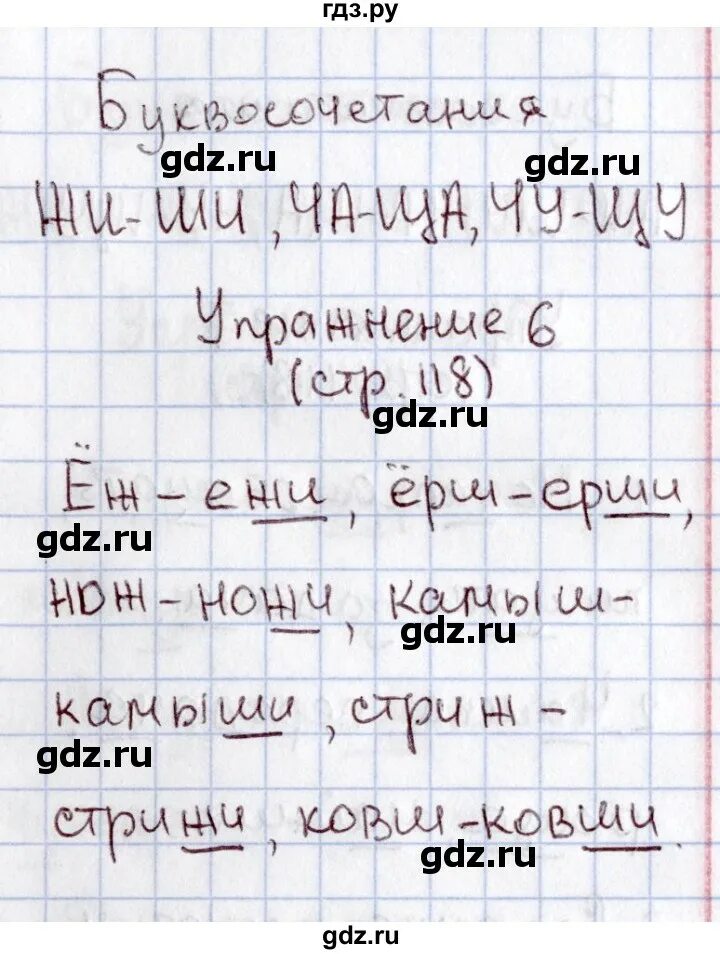 гдз.ру
Буквосочетания
gdz.ru
gdz.ru
ЖИ-ШИ, ЧА-ЩА, ЧУ-ЩУ
Упражнение 6
(стр. 118)
gdz.ru
Ёж - ежи, ёрш - ерши,
gdz.ru
нож - ножи, камыш-
gdz.ru
камыши, стриж -
gdz.ru
стрижи, ковш - ковши.
gdz.ru
gdz.ru